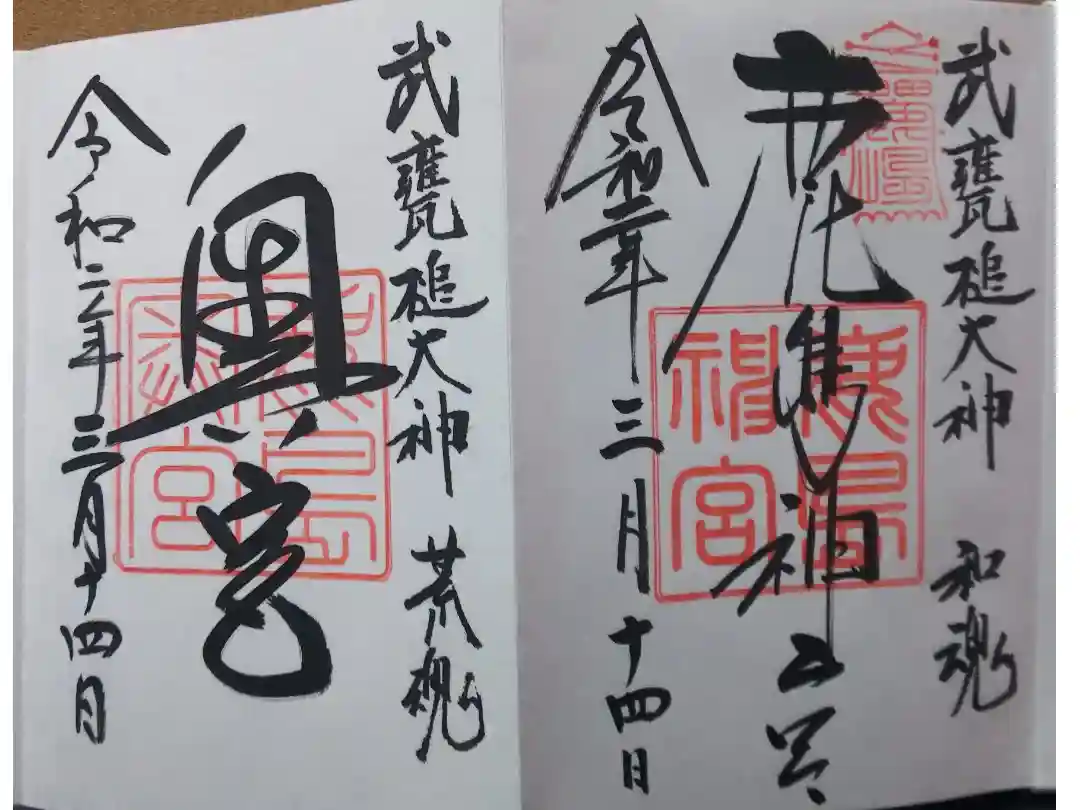 武甕槌大神 和魂
鹿島神宮
令和二年三月十四日
鹿島
鹿島神宮
武甕槌大神 荒魂
奥宮
令和二年三月十四日